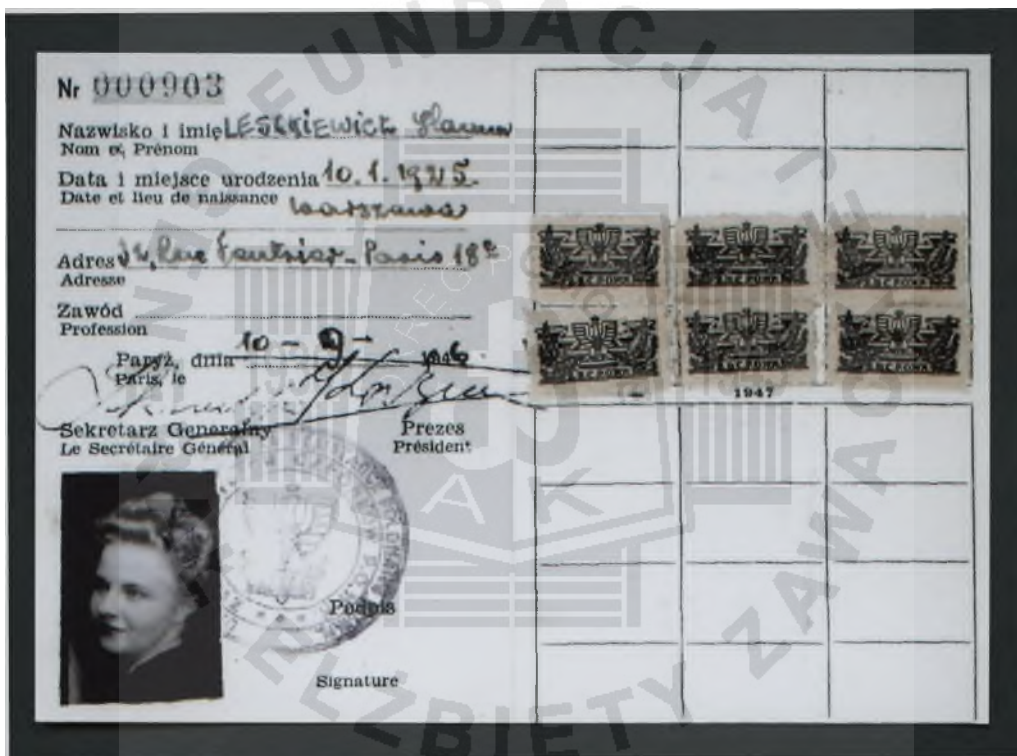 Nr 000903
Nazwisko i imię LESKIEWICZ Hanna
Nom et Prénom
Data i miejsce urodzenia 10.1.1925.
Date et lieu de naissance Warszawa
Adres Rue - Paris 18e
Adresse
Zawód
Profession
Paryż, dnia 10 - 9 - 1946.
Paris, le
Sekretarz Generalny Prezes
Le Secrétaire Général Président
Podpis
Signature
1947
FUNDACJA
ELŻBIETY ZAWACKIEJ
AK